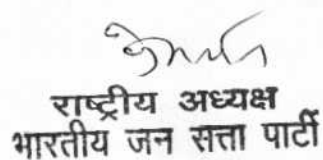 राष्ट्रीय अध्यक्ष
भारतीय जन सत्ता पार्टी